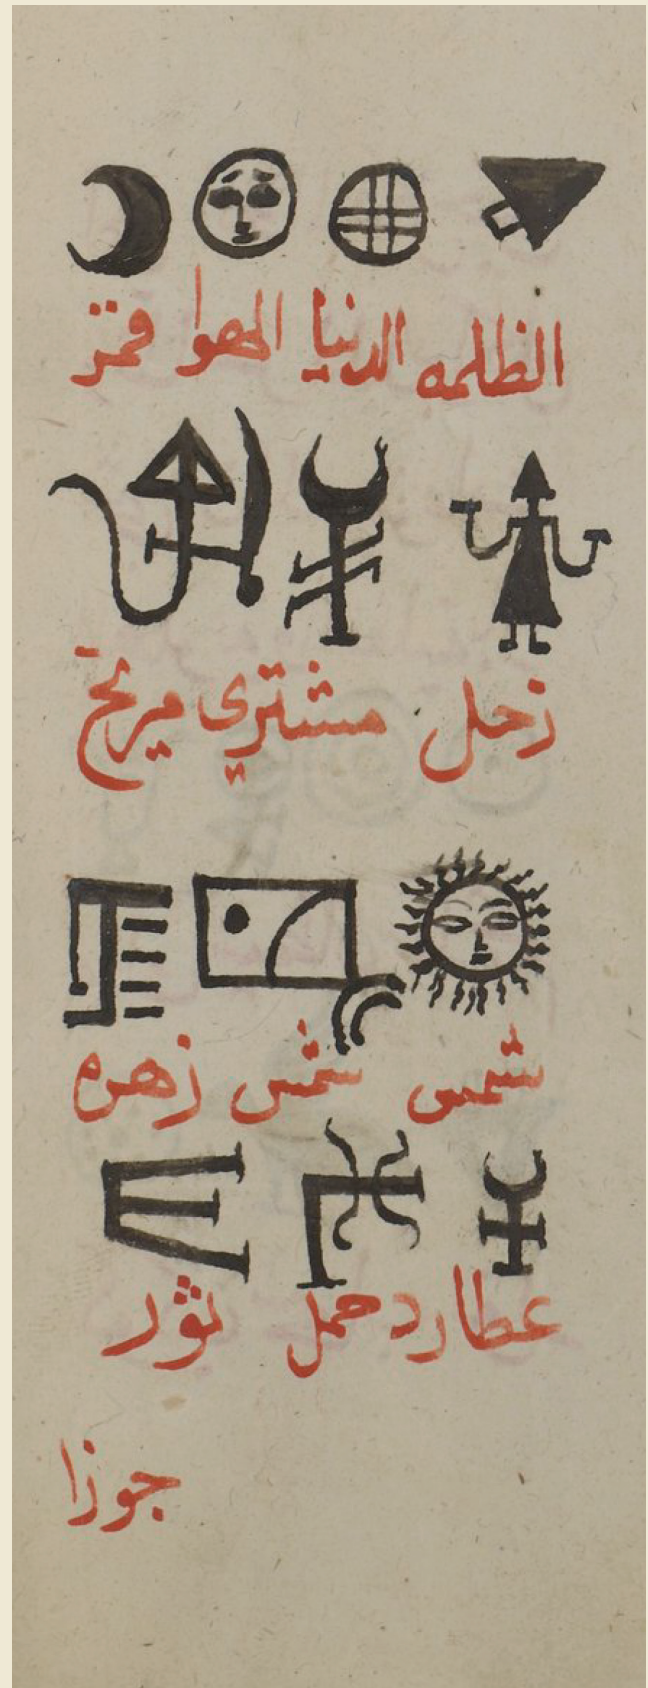 الظلمه الدنيا الهوا قمر
زحل مشتري مريخ
شمس شمس زهره
عطارد حمل ثور
جوزا